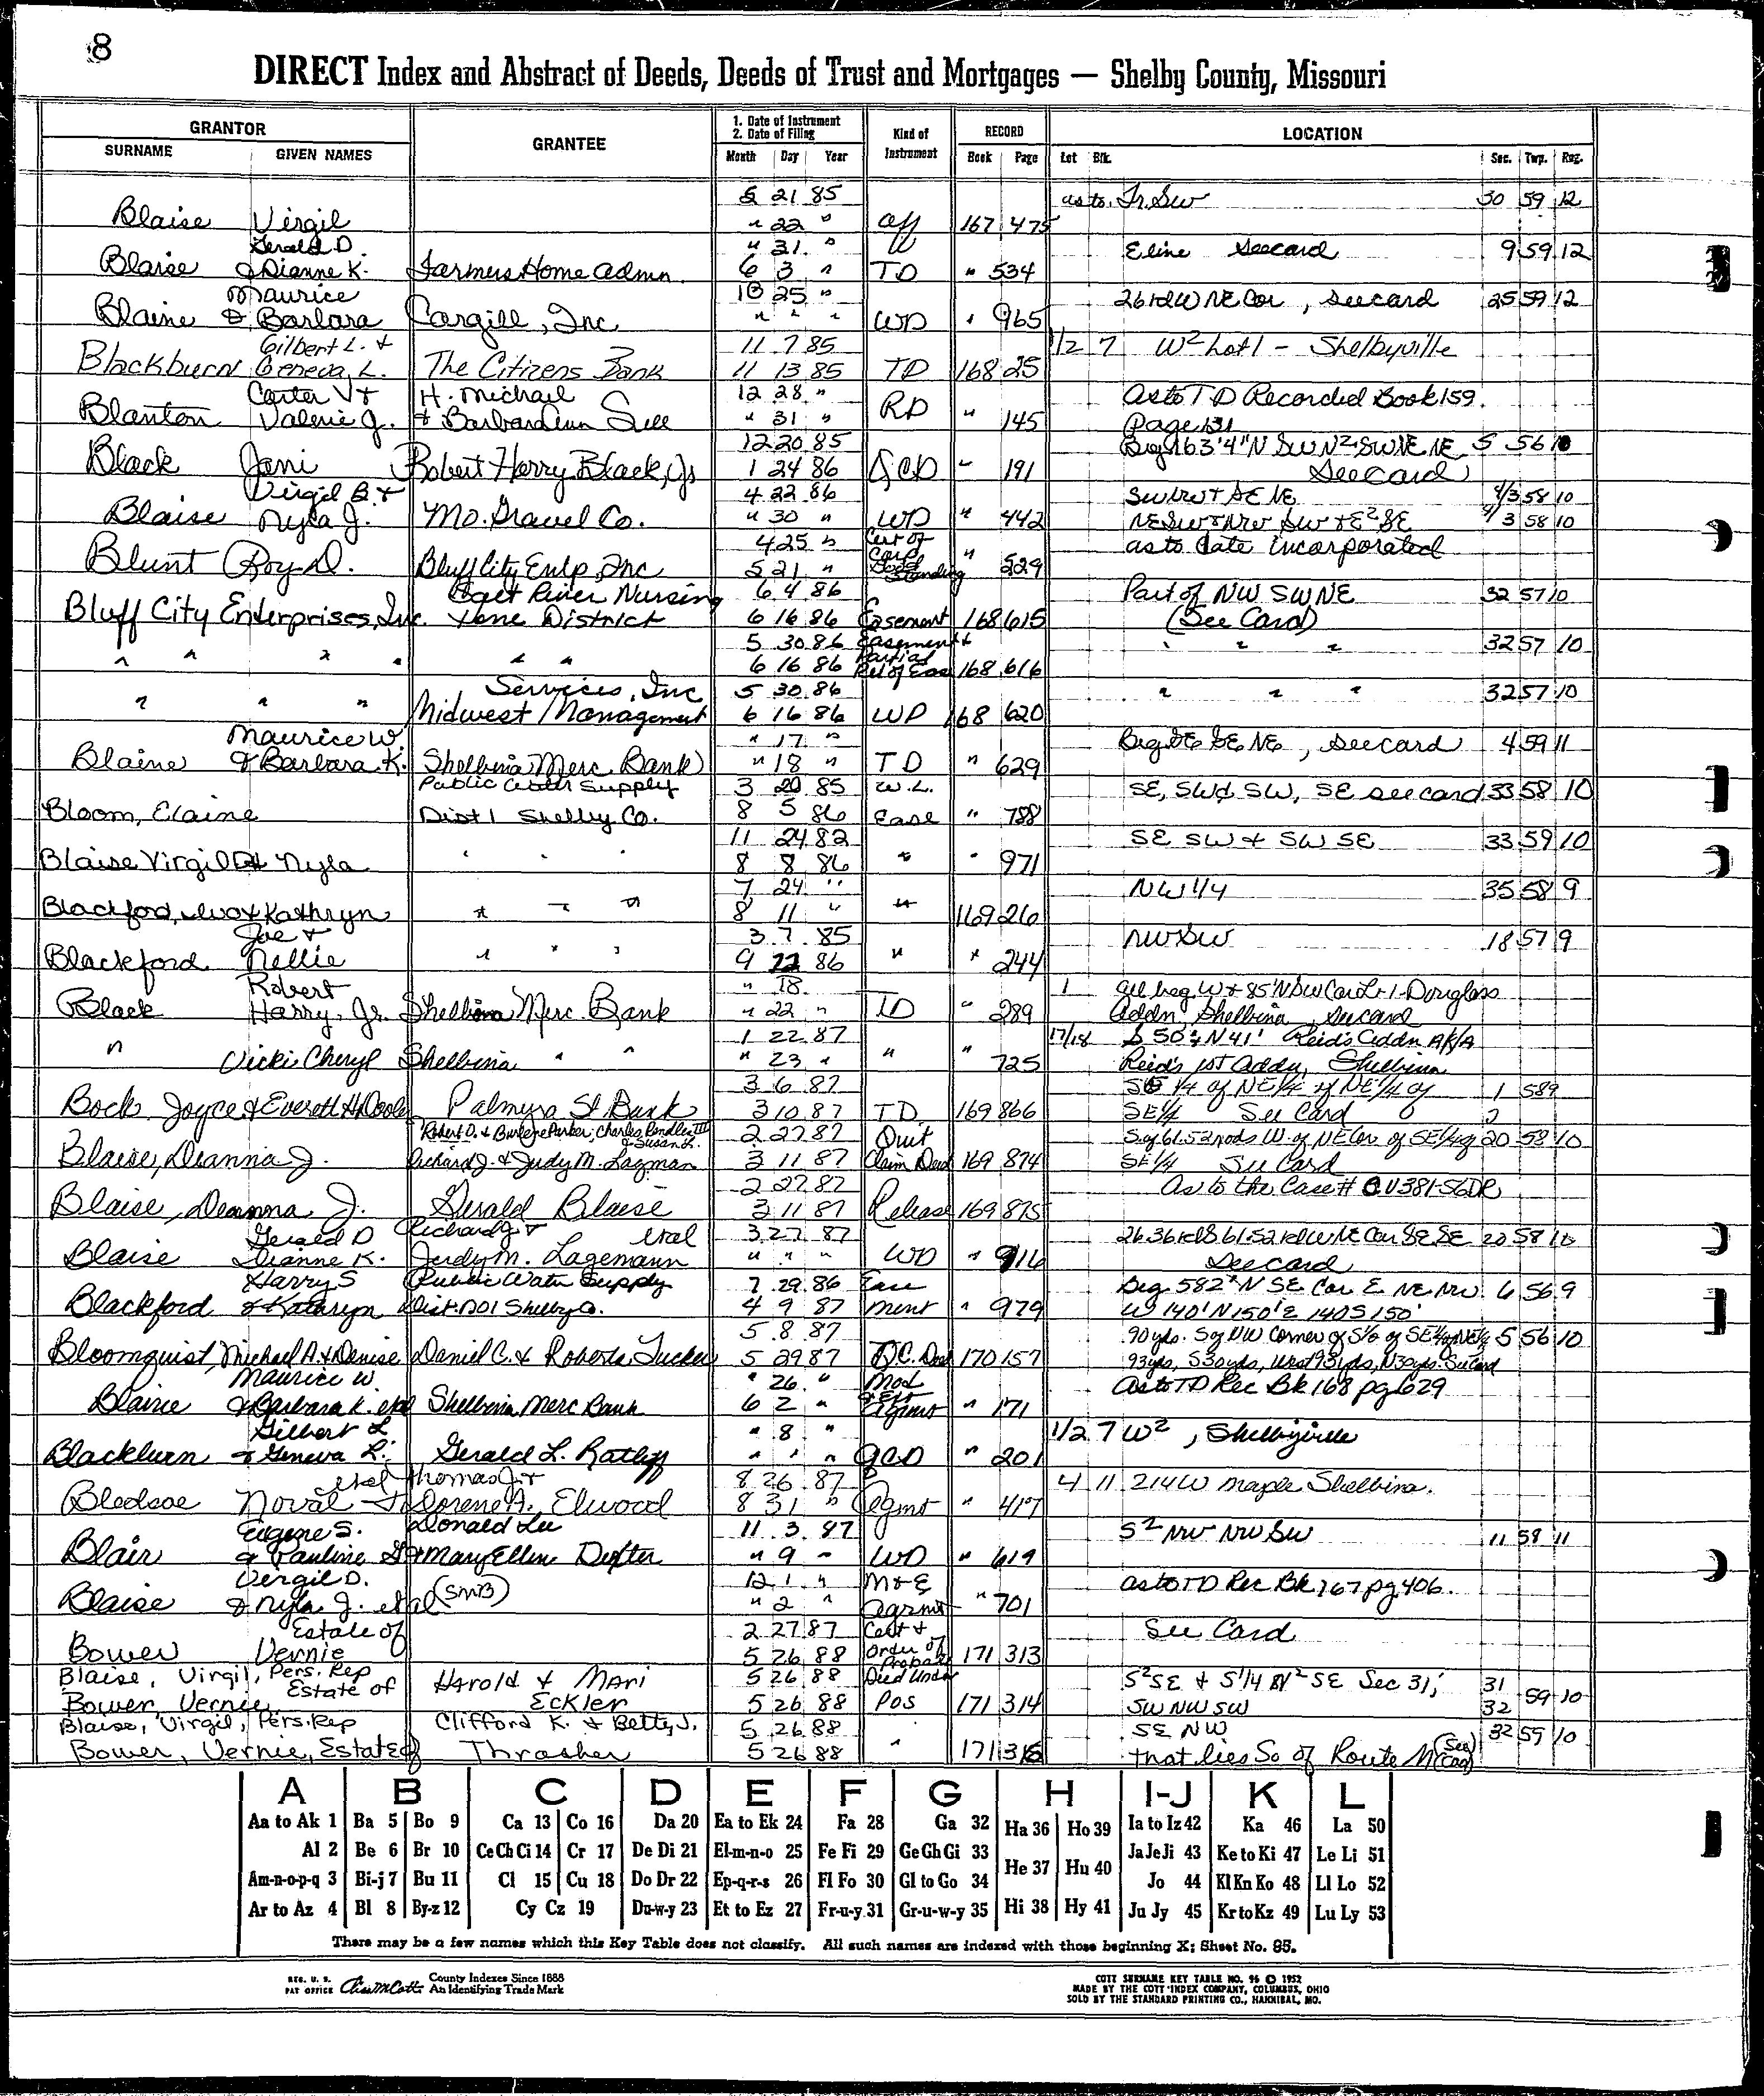 8
DIRECT Index and Abstract of Deeds, Deeds of Trust and Mortgages — Shelby County, Missouri
GRANTOR GRANTEE 1. Date of Instrument 2. Date of Filing Kind of Instrument RECORD LOCATION
SURNAME GIVEN NAMES Month Day Year Book Page Lot Blk. Sec. Twp. Rng.
5 21 85 as to Fr. SW 30 59 12
Blaise Virgil " 22 " Aff 167 475
Gerald D. " 31 " E line See card 9 59 12
Blaise & Dianne K. Farmers Home Admn. 6 3 " TD " 534
Maurice 10 25 " 26 rd W NE Cor, see card 25 59 12
Blaine & Barbara Cargill, Inc " " " WD " 965
Gilbert L. & 11 7 85 1/2 7 W2 Lot 1 - Shelbyville
Blackburn Geneva L. The Citizens Bank 11 13 85 TD 168 25
Carter V & H. Michael 12 28 " As to TD Recorded Book 159.
Blanton Valerie J. & Barbara Ann Sill " 31 " RD " 145 Page 131
12 20 85 Beg 163'4"N SW N2 SW NE NE 5 56 10
Black Jani Robert Harry Black, Jr 1 24 86 QCD " 191 See Card
Virgil B. & 4 22 86 SW NW & SE NE 4/3 58 10
Blaise Nyla J. Mo. Gravel Co. " 30 " WD " 442 NE SW & NW SW & E2 SE 4/3 58 10
4 25 " Cert of as to date incorporated
Blunt Roy D. Bluff City Entp, Inc 5 21 " Corp Good Standing " 529
Salt River Nursing 6 4 86 Part of NW SW NE 32 57 10
Bluff City Enterprises, Inc. Home District 6 16 86 Easement 168 615 (See Card)
5 30 86 Easement & " " " 32 57 10
" " " " " " 6 16 86 Partial Rel of Ease 168 616
Services, Inc 5 30 86 " " " 32 57 10
" " " Midwest Management 6 16 86 WD 168 620
Maurice W. " 17 " Beg SE SE NE, see card 4 59 11
Blaine & Barbara K. Shelbina Merc. Bank " 18 " TD " 629
Public Water Supply 3 20 85 W.L. SE, SW & SW, SE see card 33 58 10
Bloom, Elaine Dist 1 Shelby Co. 8 5 86 Ease " 788
11 24 82 SE SW & SW SE 33 59 10
Blaise Virgil D & Nyla " " " 8 8 86 " " 971
7 24 " NW 1/4 35 58 9
Blackford, Ivo & Kathryn " " " 8 11 " " 169 26
Joe & 3 7 85 NW SW 18 57 9
Blackford Nellie " " " 9 22 86 " " 244
Robert " 18 1 All beg W & 85' N SW Cor Lt 1 - Douglass
Black Harry, Jr. Shelbina Merc. Bank " 22 " TD " 289 Addn. Shelbina, see card
1 22 87 17/18 S 50' & N 41' Reid's Addn A/K/A
" Vicki Cheryl Shelbina " " " 23 " " " 725 Reid's 1st Addn, Shelbina
3 6 87 SE 1/4 of NE 1/4 of NE 1/4 of 1 58 9
Bock Joyce & Everett H. Doole Palmyra St Bank 3 10 87 TD 169 866 SE 1/4 See Card 2
Robert D. & Burlene Parker; Charles Pendleton III & Susan L. 2 27 87 Quit S of 61.52 rods W of NE Cor of SE 1/4 of 20 58 10
Blaise, Deanna J. Richard J. & Judy M. Lagman 3 11 87 Claim Deed 169 874 SE 1/4 See Card
2 27 87 As to the Case # CV381-56DR
Blaise, Deanna J. Gerald Blaise 3 11 87 Release 169 875
Gerald D Richard J & etal 3 27 87 26.36 rd S 61.52 rd W NE Cor SE SE 20 58 10
Blaise Dianne K. Judy M. Lagemann " " " WD " 916 See card
Harry S Public Water Supply 7 29 86 Ease Beg. 582' N SE Cor E NE NW 6 56 9
Blackford & Kathryn Dist. No 1 Shelby Co. 4 9 87 ment " 979 W 140' N 150' E 140 S 150'
5 8 87 90 yds. S of NW Corner of S/2 of SE 1/4 of NE 1/4 5 56 10
Bloomquist, Michael A. & Denise Daniel C. & Roberta Tucker 5 29 87 Q.C. Deed 170 157 93 yds, S 30 yds, West 93 yds, N 30 yds. See Card
Maurice W. " 26 " Mod As to TD Rec Bk 168 pg 629
Blaine & Barbara K. etal Shelbina Merc Bank 6 2 " & Ext Agmt " 171
Gilbert L " 8 " 1/2 7 W2, Shelbyville
Blackburn & Geneva L. Gerald L. Ratliff " " " QCD " 201
etal Thomas J. & 8 26 87 4 11 214 W Maple Shelbina.
Bledsoe Noval Florene A. Elwood 8 31 " Agmt " 417
Eugene S. Donald Lee 11 3 87 S2 NW NW SW 11 58 11
Blair & Pauline G & Mary Ellen Defter " 9 " WD " 619
Virgil D. 12 1 " M & E as to TD Rec Bk 167 pg 406.
Blaise & Nyla J. etal (SMB) " 2 " Agrmt " 701
Estate of 2 27 87 Cert & See Card
Bower Vernie 5 26 88 Order of Probate 171 313
Blaise, Virgil, Pers. Rep Harold & Mari 5 26 88 Deed Under S2 SE & S 1/4 N2 SE Sec 31; 31
Bower Vernie Estate of Eckler 5 26 88 POS 171 314 SW NW SW 32 59 10
Blaise, Virgil, Pers. Rep Clifford K. & Betty J. 5 26 88 SE NW 32 59 10
Bower, Vernie, Estate of Thrasher 5 26 88 " 171 315 that lies So of Route M (See Card)
A B C D E F G H I-J K L
Aa to Ak 1 Ba 5 Bo 9 Ca 13 Co 16 Da 20 Ea to Ek 24 Fa 28 Ga 32 Ha 36 Ho 39 Ia to Iz 42 Ka 46 La 50
Al 2 Be 6 Br 10 Ce Ch Ci 14 Cr 17 De Di 21 El-m-n-o 25 Fe Fi 29 Ge Gh Gi 33 He 37 Hu 40 Ja Je Ji 43 Ke to Ki 47 Le Li 51
Am-n-o-p-q 3 Bi-j 7 Bu 11 Cl 15 Cu 18 Do Dr 22 Ep-q-r-s 26 Fl Fo 30 Gl to Go 34 Jo 44 Kl Kn Ko 48 Ll Lo 52
Ar to Az 4 Bl 8 By-z 12 Cy Cz 19 Du-w-y 23 Et to Ez 27 Fr-u-y 31 Gr-u-w-y 35 Hi 38 Hy 41 Ju Jy 45 Kr to Kz 49 Lu Ly 53
There may be a few names which this Key Table does not classify. All such names are indexed with those beginning X; Sheet No. 95.
REG. U. S. PAT OFFICE County Indexes Since 1888 An Identifying Trade Mark
COTT SURNAME KEY TABLE NO. 96 © 1952
MADE BY THE COTT INDEX COMPANY, COLUMBUS, OHIO
SOLD BY THE STANDARD PRINTING CO., HANNIBAL, MO.